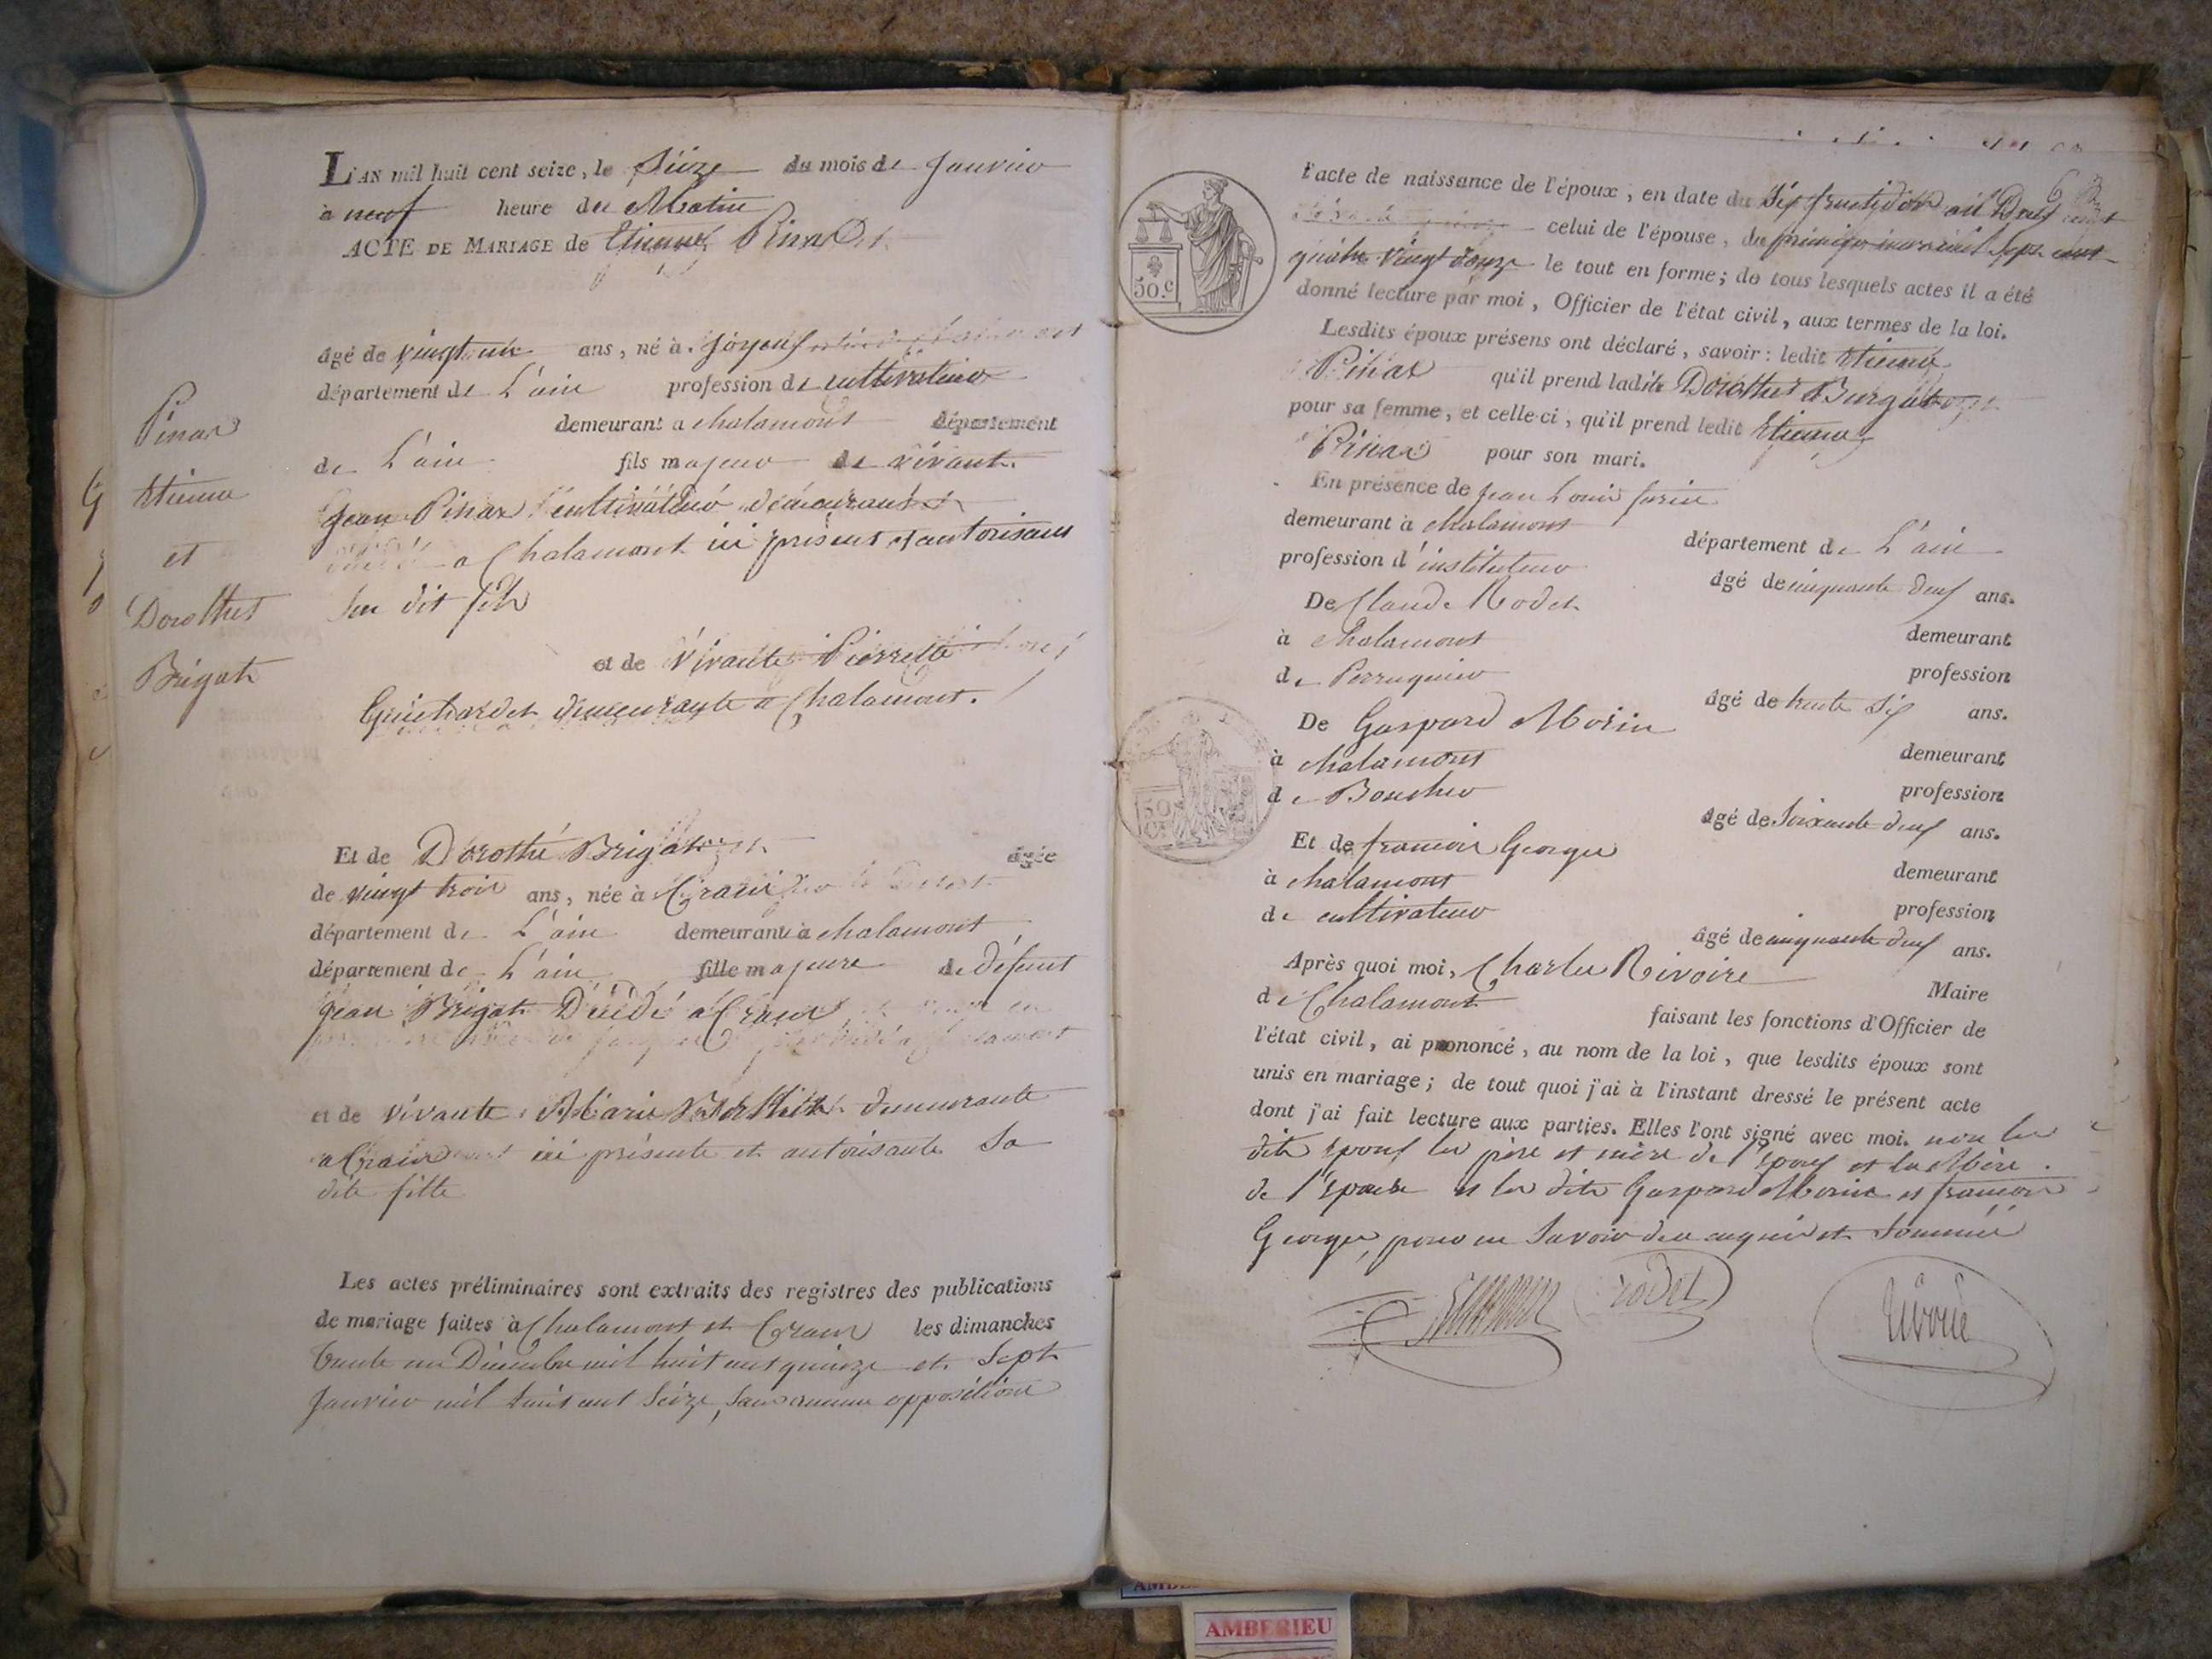 Pinar
Etienne
et
Dorothée
Brigat
L'AN mil huit cent seize, le Seize du mois de janvier
à neuf heure du Matin
ACTE DE MARIAGE de Etienne Pinar
âgé de vingt un ans, né à joyeux
département de L'ain profession de cultivateur
demeurant a chalamont département
de L'ain fils majeur de vivant
Jean Pinar cultivateur demeurant
a Chalamont ici présent et autorisant
son dit fils
et de vivante Pierrette
Guichardet demeurante a Chalamont.
Et de Dorothé Brigat âgée
de vingt trois ans, née à Crans
département de L'ain demeurante à chalamont
département de L'ain fille majeure de défunt
jean Brigat Décédé a Crans
et de vivante Marie demeurante
a Crans ici présente et autorisante Sa
dite fille
Les actes préliminaires sont extraits des registres des publications
de mariage faites à Chalamont et Crans les dimanches
trente un Décembre mil huit cent quinze et Sept
janvier mil huit cent Seize, sans aucune opposition
50.c
l'acte de naissance de l'époux, en date du fructidor an Deux
celui de l'épouse, du premier mil Sept cent
quatre vingt douze le tout en forme; de tous lesquels actes il a été
donné lecture par moi, Officier de l'état civil, aux termes de la loi.
Lesdits époux présens ont déclaré, savoir: ledit Etienne
Pinar qu'il prend ladite Dorothée
pour sa femme, et celle-ci, qu'il prend ledit Etienne
Pinar pour son mari.
En présence de jean Louis
demeurant à chalamont département de L'ain
profession d'instituteur âgé de cinquante deux ans.
De Claude Rodet demeurant
à chalamont profession
de Perruquier âgé de trente Six ans.
De Gaspard Morin demeurant
à chalamont profession
de Boucher âgé de Soixante deux ans.
Et de françois Georges demeurant
à chalamont profession
de cultivateur âgé de cinquante deux ans.
Après quoi moi, Charles Rivoire Maire
de Chalamont faisant les fonctions d'Officier de
l'état civil, ai prononcé, au nom de la loi, que lesdits époux sont
unis en mariage; de tout quoi j'ai à l'instant dressé le présent acte
dont j'ai fait lecture aux parties. Elles l'ont signé avec moi. non les
dits époux les père et mère de l'époux et la Mère
de l'épouse et les dits Gaspard Morin et françois
Georges, pour ne Savoir de ce enquis et Sommés
rodet
rivoire
50
C.
AMBERIEU